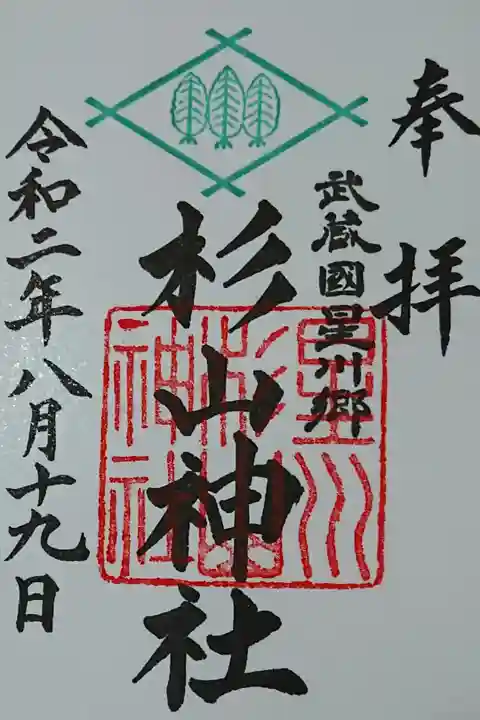 奉拝
武蔵國星川郷
杉山神社
星川杉山神社
令和二年八月十九日